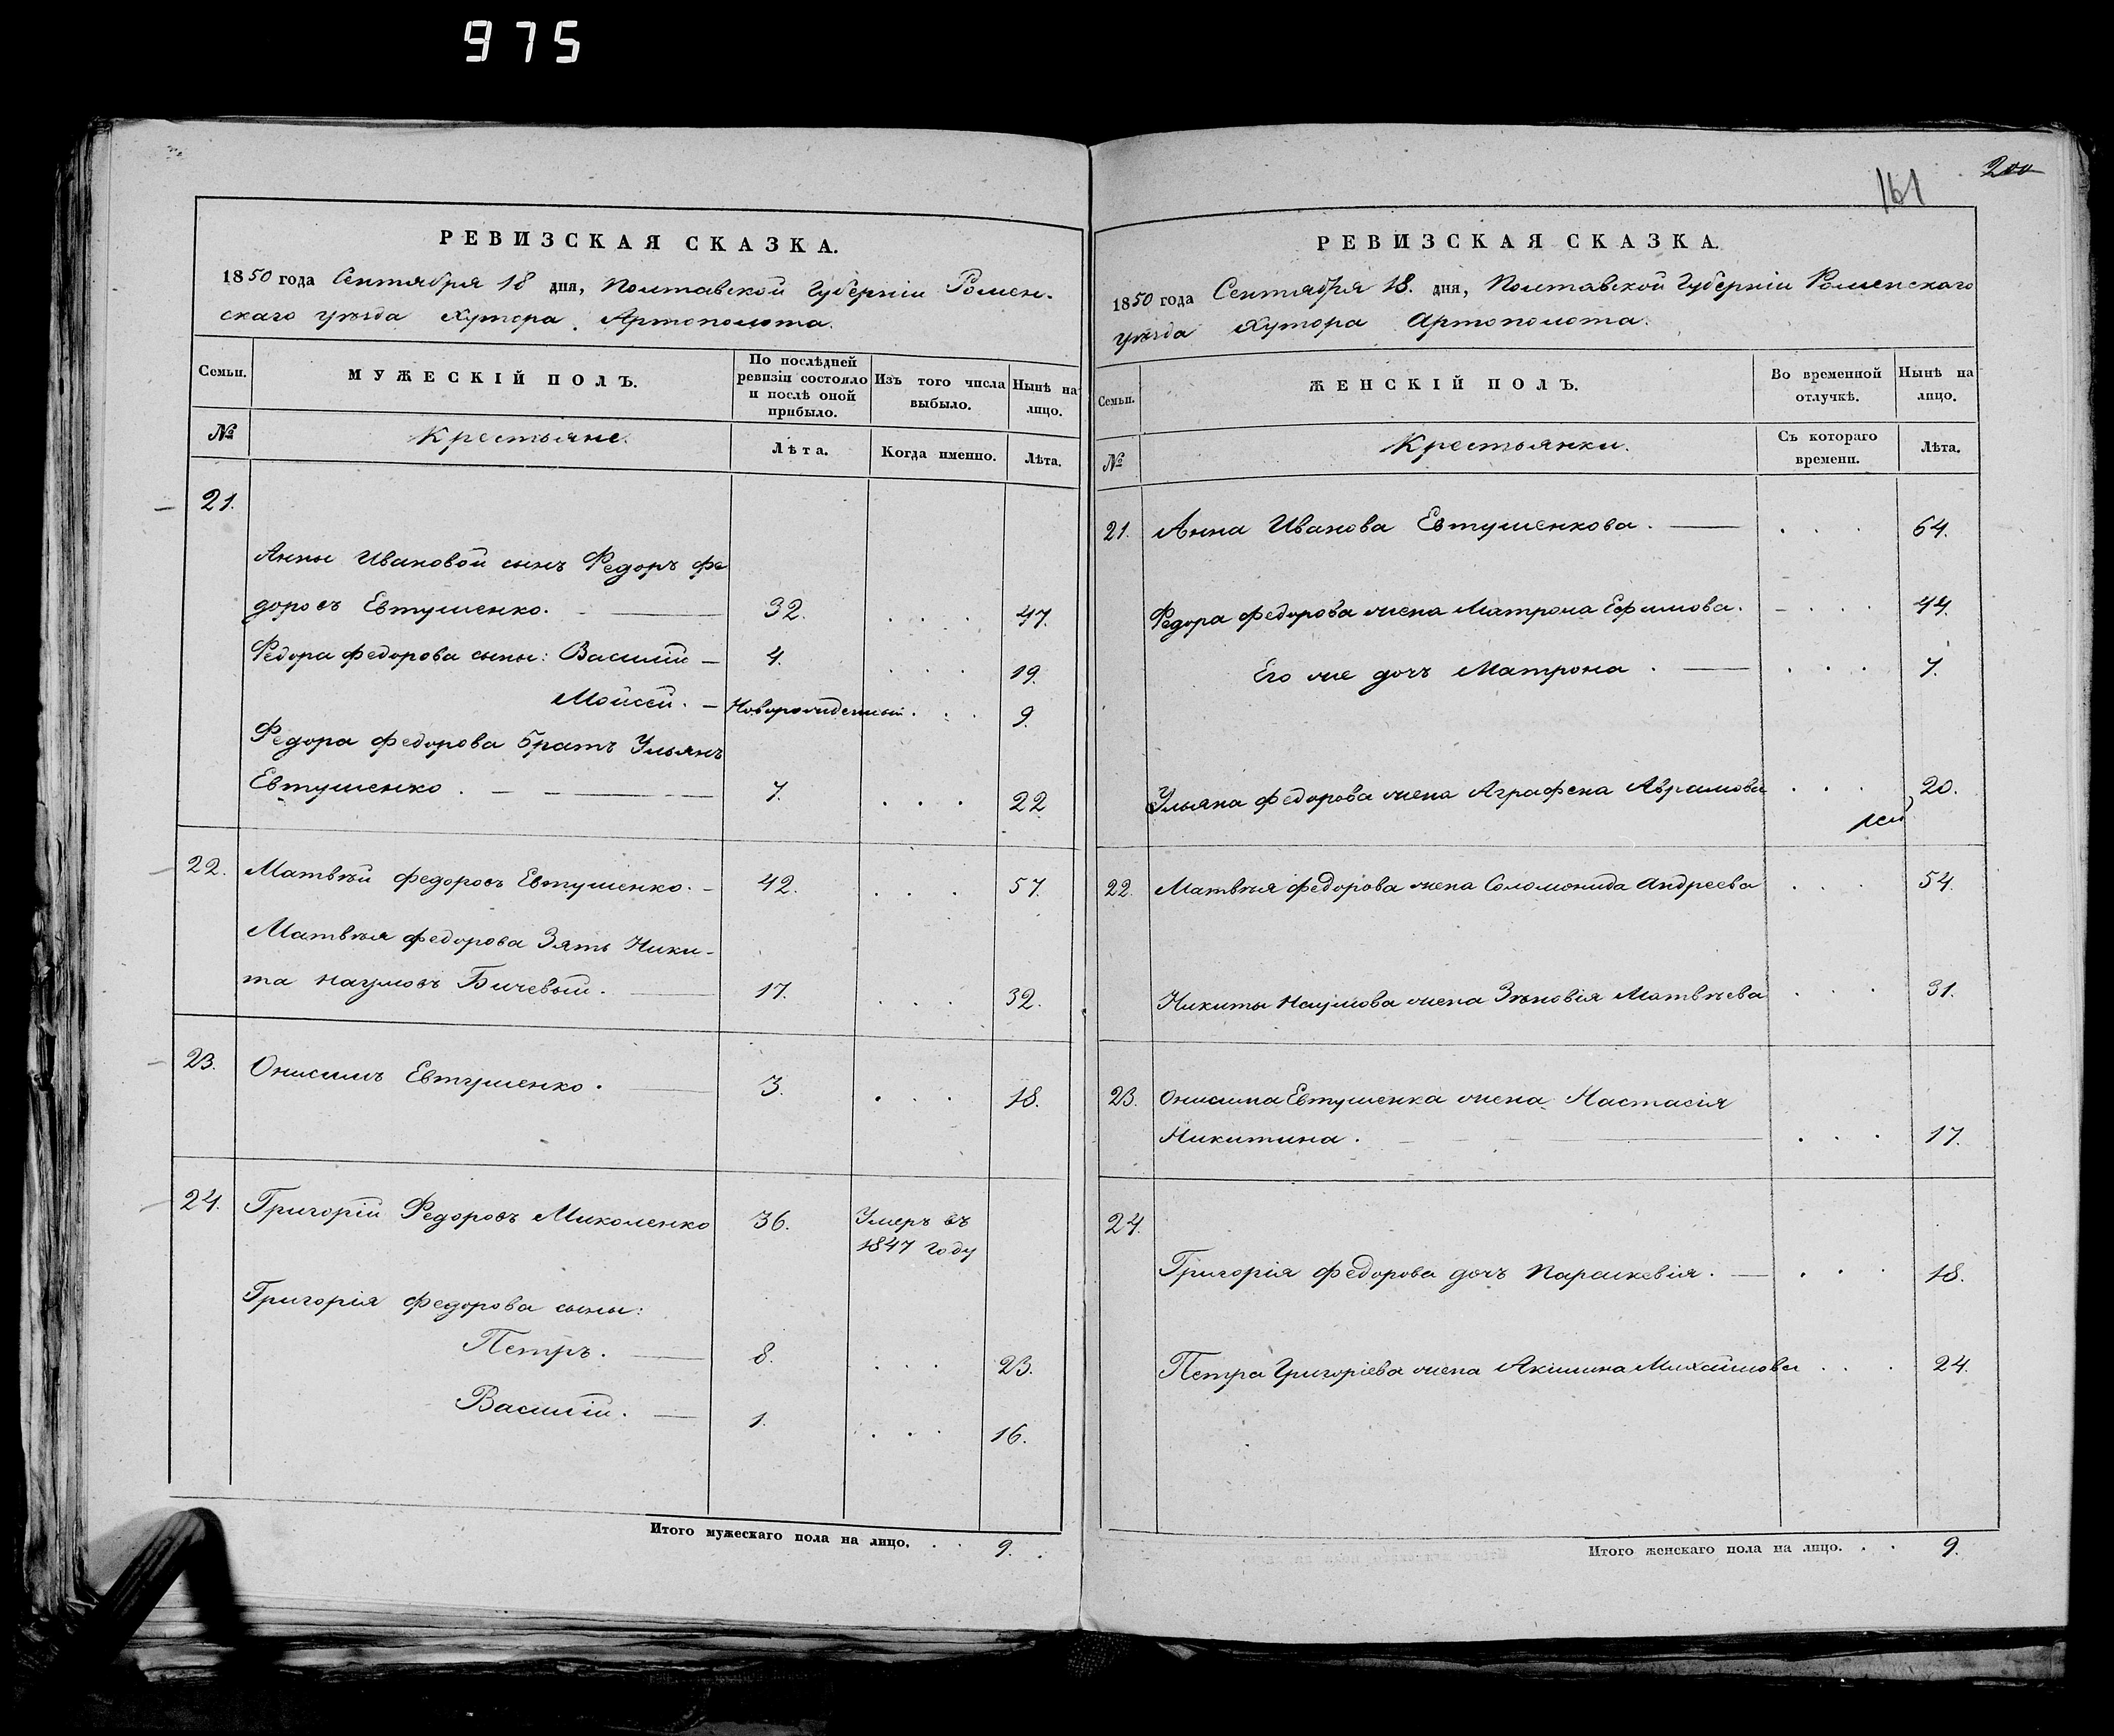 975
РЕВИЗСКАЯ СКАЗКА.
1850 года Сентября 18 дня, Полтавской Губерніи Ромен-
скаго уѣзда Хутора Артополота.
Семьи.
МУЖЕСКІЙ ПОЛЪ.
По послѣдней ревизіи состояло и послѣ оной прибыло.
Изъ того числа выбыло.
Нынѣ на лицо.
№
Крестьяне.
Лѣта.
Когда именно.
Лѣта.
21.
Анны Ивановой сынъ Федоръ Фе
доровъ Евтушенко. 32. . . . 47.
Федора Федорова сыны: Василій — 4. . . . 19.
Мойсей. — Новорожденный . . . 9.
Федора Федорова братъ Ульянъ
Евтушенко . — 7. . . . 22
22. Матвѣй Федоровъ Евтушенко. — 42. . . . 57.
Матвѣя Федорова Зять Ники-
та Наумовъ Бичевый. — 17. . . . 32.
23. Онисимъ Евтушенко. — 3. . . . 18.
24. Григорій Федоровъ Миколенко 36. Умеръ въ
1847 году
Григорія Федорова сыны:
Петръ. — 8. . . . 23.
Василій. — 1. . . . 16.
Итого мужескаго пола на лицо. . . 9.
161
200
РЕВИЗСКАЯ СКАЗКА.
1850 года Сентября 18. дня, Полтавской Губерніи Роменскаго
уѣзда Хутора Артополота.
Семьи.
ЖЕНСКІЙ ПОЛЪ.
Во временной отлучкѣ.
Нынѣ на лицо.
№
Крестьянки.
Съ котораго времени.
Лѣта.
21. Анна Иванова Евтушенкова. — . . . 64.
Федора Федорова жена Матрона Ефимова. . . . 44.
Его же дочь Матрона . — . . . 7.
Ульяна Федорова жена Аграфена Аврамова . . . 20.
22. Матвѣя Федорова жена Соломонида Андреева . . . 54.
Никиты Наумова жена Зѣновія Матвѣева . . . 31.
23. Онисима Евтушенка жена Настасія
Никитина. — . . . 17.
24.
Григорія Федорова дочь Параскевія. — . . . 18.
Петра Григоріева жена Акилина Михайлова . . . 24.
Итого женскаго пола на лицо. . . 9.